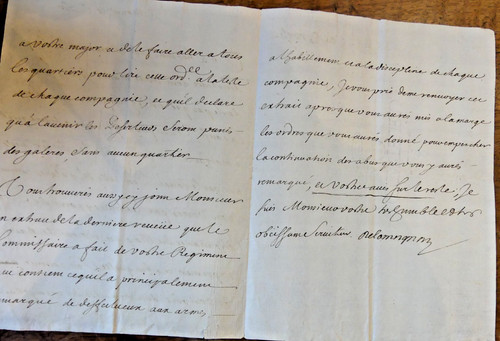 a vostre major, e de le faire aller a tous
les quartiers pour lire cette ord.ce a la teste
de chaque compagnie, et qu'il declare
qu'à l'auenir les Deserteurs seront punis
des galeres, sans aucun quartier.
Vous trouverés aussy cy joint Monsieur
un extrait de la derniere reveüe que le
commissaire a fait de vostre Regiment
qui contient ce qu'il a principalement
remarqué de deffectueux aux armes
a l'habillement et a la discipline de chaque
compagnie, Je vous prie de me renvoyer cet
extrait apres que vous aures mis a la marge
les ordres que vous aurés donné pour empescher
la continuation des abus que vous y aurés
remarqué, et vostre avis sur le reste, Je
suis Monsieur vostre tres humble et tres
obeissant serviteur